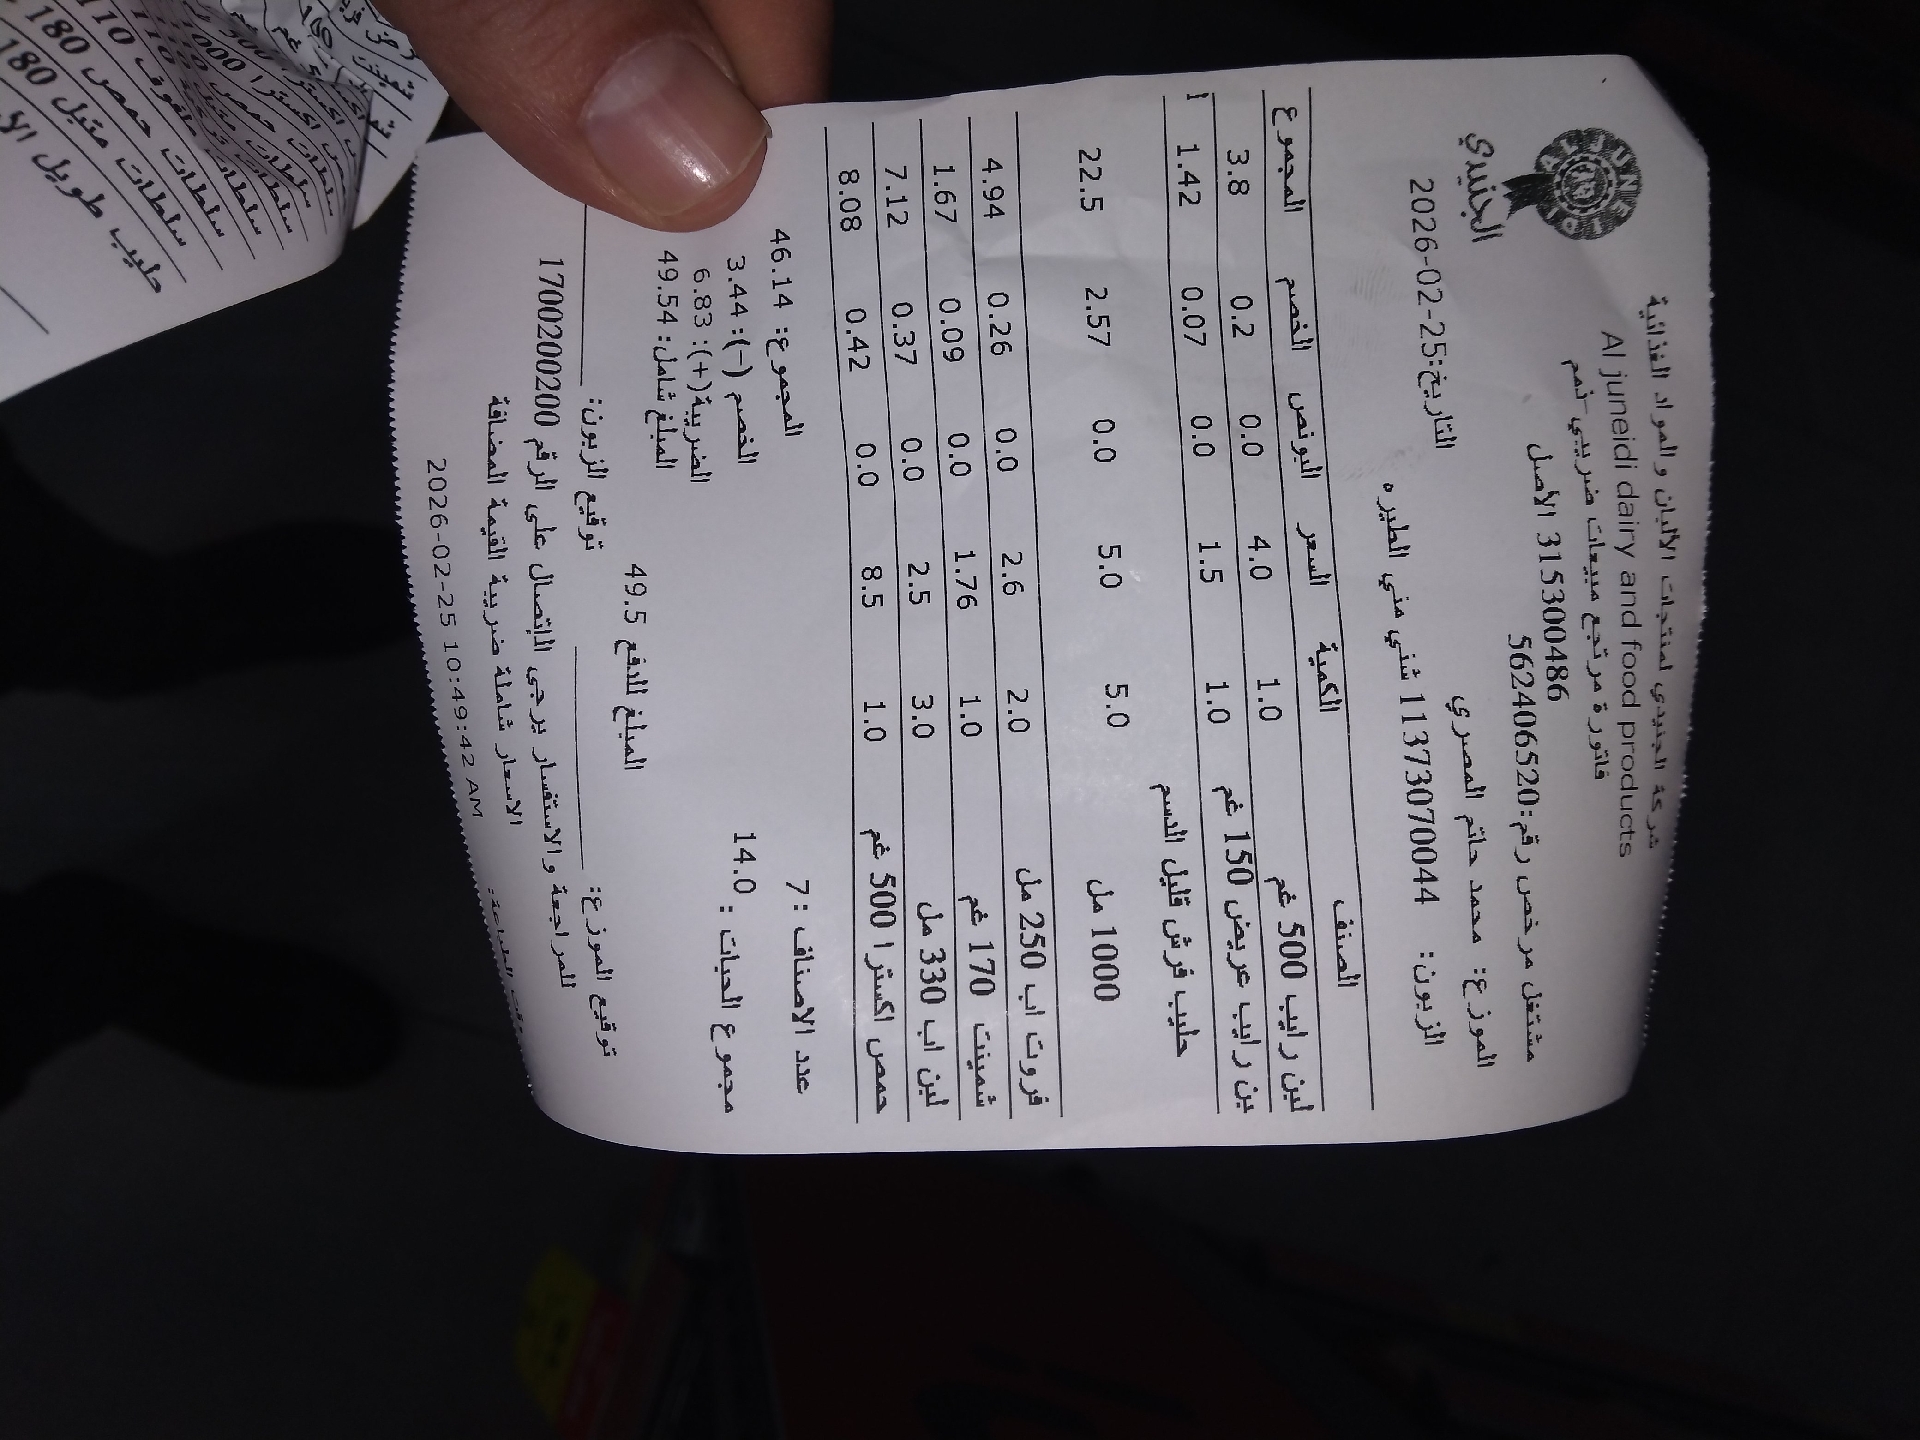 AL JUNEIDI
الجنيدي
شركة الجنيدي لمنتجات الألبان و المواد الغذائية
Al juneidi dairy and food products
فاتورة مرتجع مبيعات ضريبي-ذمم
315300486 الأصل
مشتغل مرخص رقم:562406520
الموزع: محمد حاتم المصري
التاريخ:2026-02-25
الزبون: 11373070044 شني مني الطيره
الصنف الكمية السعر البونص الخصم المجموع
لبن رايب 500 غم 1.0 4.0 0.0 0.2 3.8
بن رايب عريض 150 غم 1.0 1.5 0.0 0.07 1.42
حليب فرش قليل الدسم
1000 مل 5.0 5.0 0.0 2.57 22.5
فروت اب 250 مل 2.0 2.6 0.0 0.26 4.94
شمينت 170 غم 1.0 1.76 0.0 0.09 1.67
لبن اب 330 مل 3.0 2.5 0.0 0.37 7.12
حمص اكسترا 500 غم 1.0 8.5 0.0 0.42 8.08
عدد الاصناف :7 المجموع: 46.14
مجموع الحبات : 14.0 الخصم (-): 3.44
الضريبة(+): 6.83
المبلغ شامل: 49.54
المبلغ للدفع 49.5
توقيع الموزع: توقيع الزبون:
للمراجعة والاستفسار يرجى الاتصال على الرقم 1700200200
الاسعار شاملة ضريبة القيمة المضافة
2026-02-25 10:49:42 AM
شمينت 160
سلطات حمص 180
سلطات متبل 180
حليب طويل